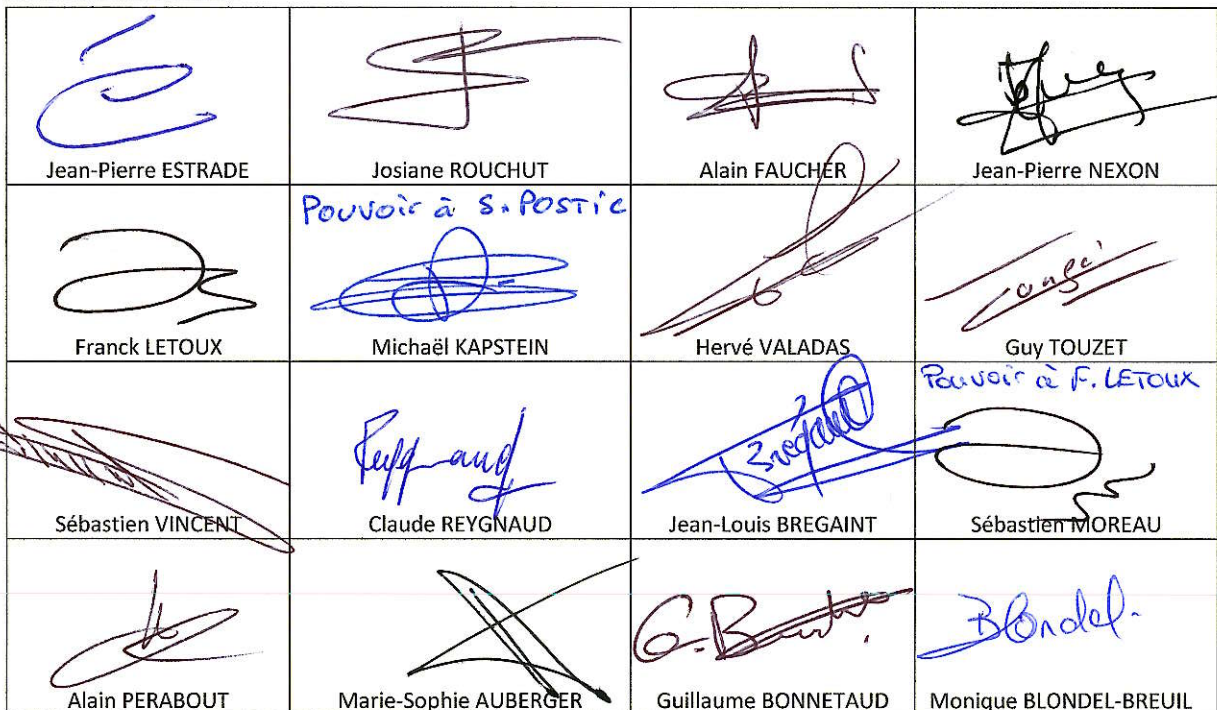 Jean-Pierre ESTRADE
Josiane ROUCHUT
Alain FAUCHER
Jean-Pierre NEXON
Franck LETOUX
Pouvoir à S. POSTIC
Michaël KAPSTEIN
Hervé VALADAS
Guy TOUZET
Sébastien VINCENT
Reygnaud
Claude REYGNAUD
Brégaint
Jean-Louis BREGAINT
Pouvoir à F. LETOUX
Sébastien MOREAU
Alain PERABOUT
Marie-Sophie AUBERGER
Guillaume BONNETAUD
Blondel.
Monique BLONDEL-BREUIL